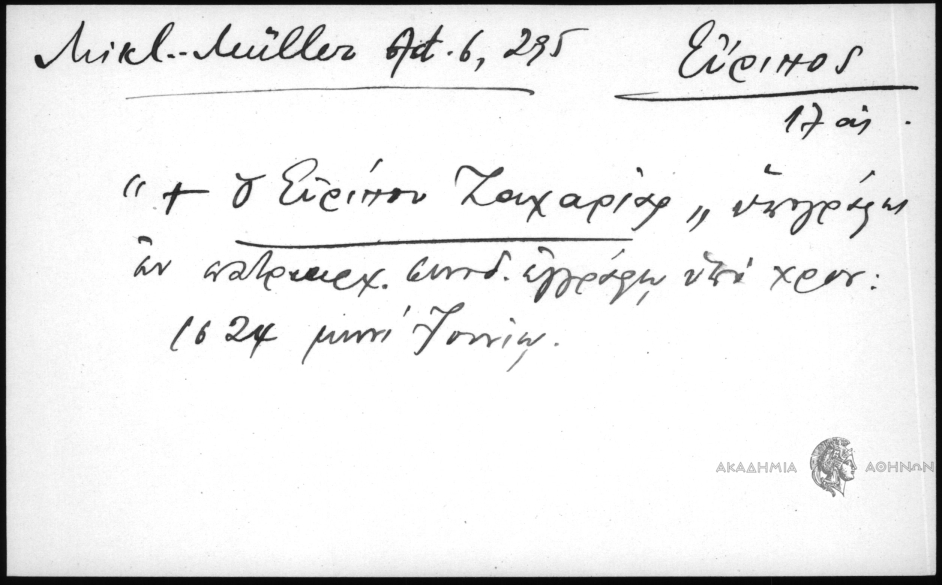 Mikl.-Müller Act. 6, 295
Εὔριπος
17 αἰ.
"+ ὁ Εὐρίπου Ζαχαρίας" ὑπογράφει
ἐν πατριαρχ. συνοδ. ἐγγράφῳ ὑπό χρον:
1624 μηνί Ἰουνίῳ.
ΑΚΑΔΗΜΙΑ ΑΘΗΝΩΝ